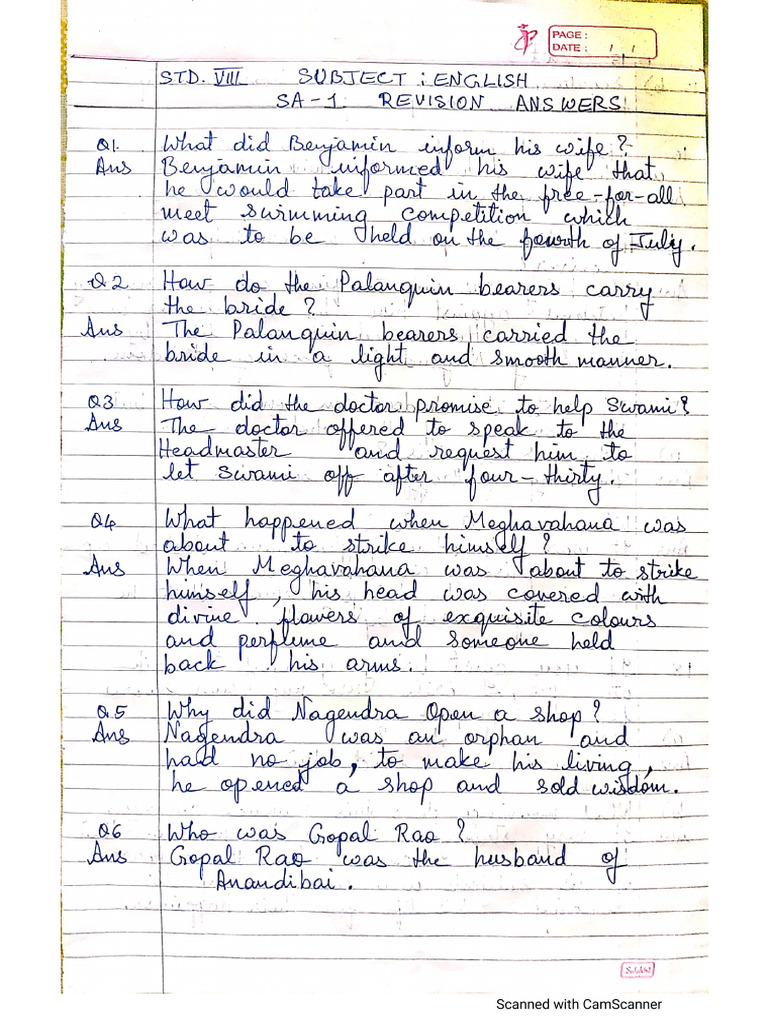 PAGE :
DATE : / /
STD. VIII SUBJECT : ENGLISH
SA-1 REVISION ANSWERS
Q1. What did Benjamin inform his wife ?
Ans Benjamin informed his wife that
he would take part in the free-for-all
meet swimming competition which
was to be held on the fourth of July.
Q2 How do the Palanquin bearers carry
the bride ?
Ans The Palanquin bearers carried the
bride in a light and smooth manner.
Q3 How did the doctor promise to help Swami?
Ans The doctor offered to speak to the
Headmaster and request him to
let Swami off after four-thirty.
Q4 What happened when Meghavahana was
about to strike himself ?
Ans When Meghavahana was about to strike
himself, his head was covered with
divine flowers of exquisite colours
and perfume and someone held
back his arms.
Q.5 Why did Nagendra Open a shop ?
Ans Nagendra was an orphan and
had no job, to make his living,
he opened a shop and sold wisdom.
Q6 Who was Gopal Rao ?
Ans Gopal Rao was the husband of
Anandibai.
Scanned with CamScanner